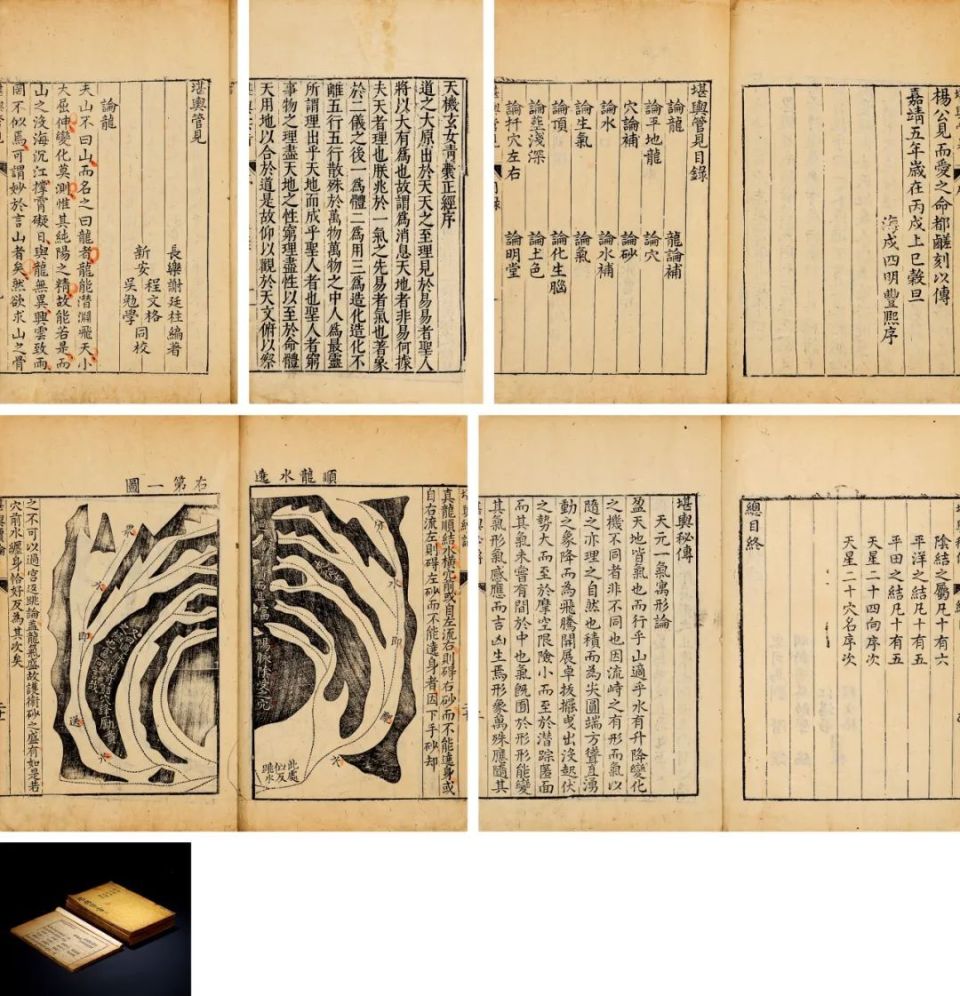 堪輿管見
長樂謝廷柱編著
新安程文格
吳勉學同校
論龍
夫山不曰山而名之曰龍者龍能潛淵飛天小
大屈伸變化莫測惟其純陽之精故能若是而
山之沒海沉江撐霄礙日與龍無異興雲致雨
罔不似焉可謂妙於言山者矣然欲求山之骨
天機玄女青囊正經序
道之大原出於天天之至理見於易易者聖人
將以大有為也故謂為消息天地者非易何據
夫天者理也朕兆於一氣之先易者氣也著象
於二儀之後一為體二為用三為造化造化不
離五行五行散殊於萬物萬物之中人為最靈
所謂理出乎天地而成乎聖人者也聖人者窮
事物之理盡天地之性窮理盡性以至於命體
天用地以合於道是故仰以觀於天文俯以察
楊公見而愛之命都鹺刻以傳
嘉靖五年歲在丙戌上巳穀旦
海戍四明豐熙序
堪輿管見目錄
論龍
龍論補
論平地龍
論穴
穴論補
論砂
論水
論水補
論生氣
論氣
論頂
論化生腦
論塟淺深
論土色
論扦穴左右
論明堂
順龍水遶
右第一圖
真龍順結水橫穴前或自左流右則碍右砂而不能遶身或
自右流左則碍左砂而不能遶身者因下手砂却
之不可以過宮返跳論蓋龍氣盛故護衛砂之盛有如是若
穴前水纏身恰好反為其次矣
此處
似反
雖水
陰結之屬凡十有六
平洋之結凡十有五
平田之結凡十有五
天星二十四向序次
天星二十穴名序次
總目終
堪輿秘傳
天元一氣寓形論
盈天地皆氣也而行乎山適乎水有升降變化
之機不同者非不同也因流峙之有形而氣以
隨之亦理之自然也積而為尖圓端方聳直湧
動之象降而為飛騰開展卓拔擺曳出沒起伏
之勢大而至於摩空限險小而至於潛踪匿面
而其氣未嘗有間於中也氣旣囿於形形能變
其氣形氣感應而吉凶生焉形象萬殊應隨其